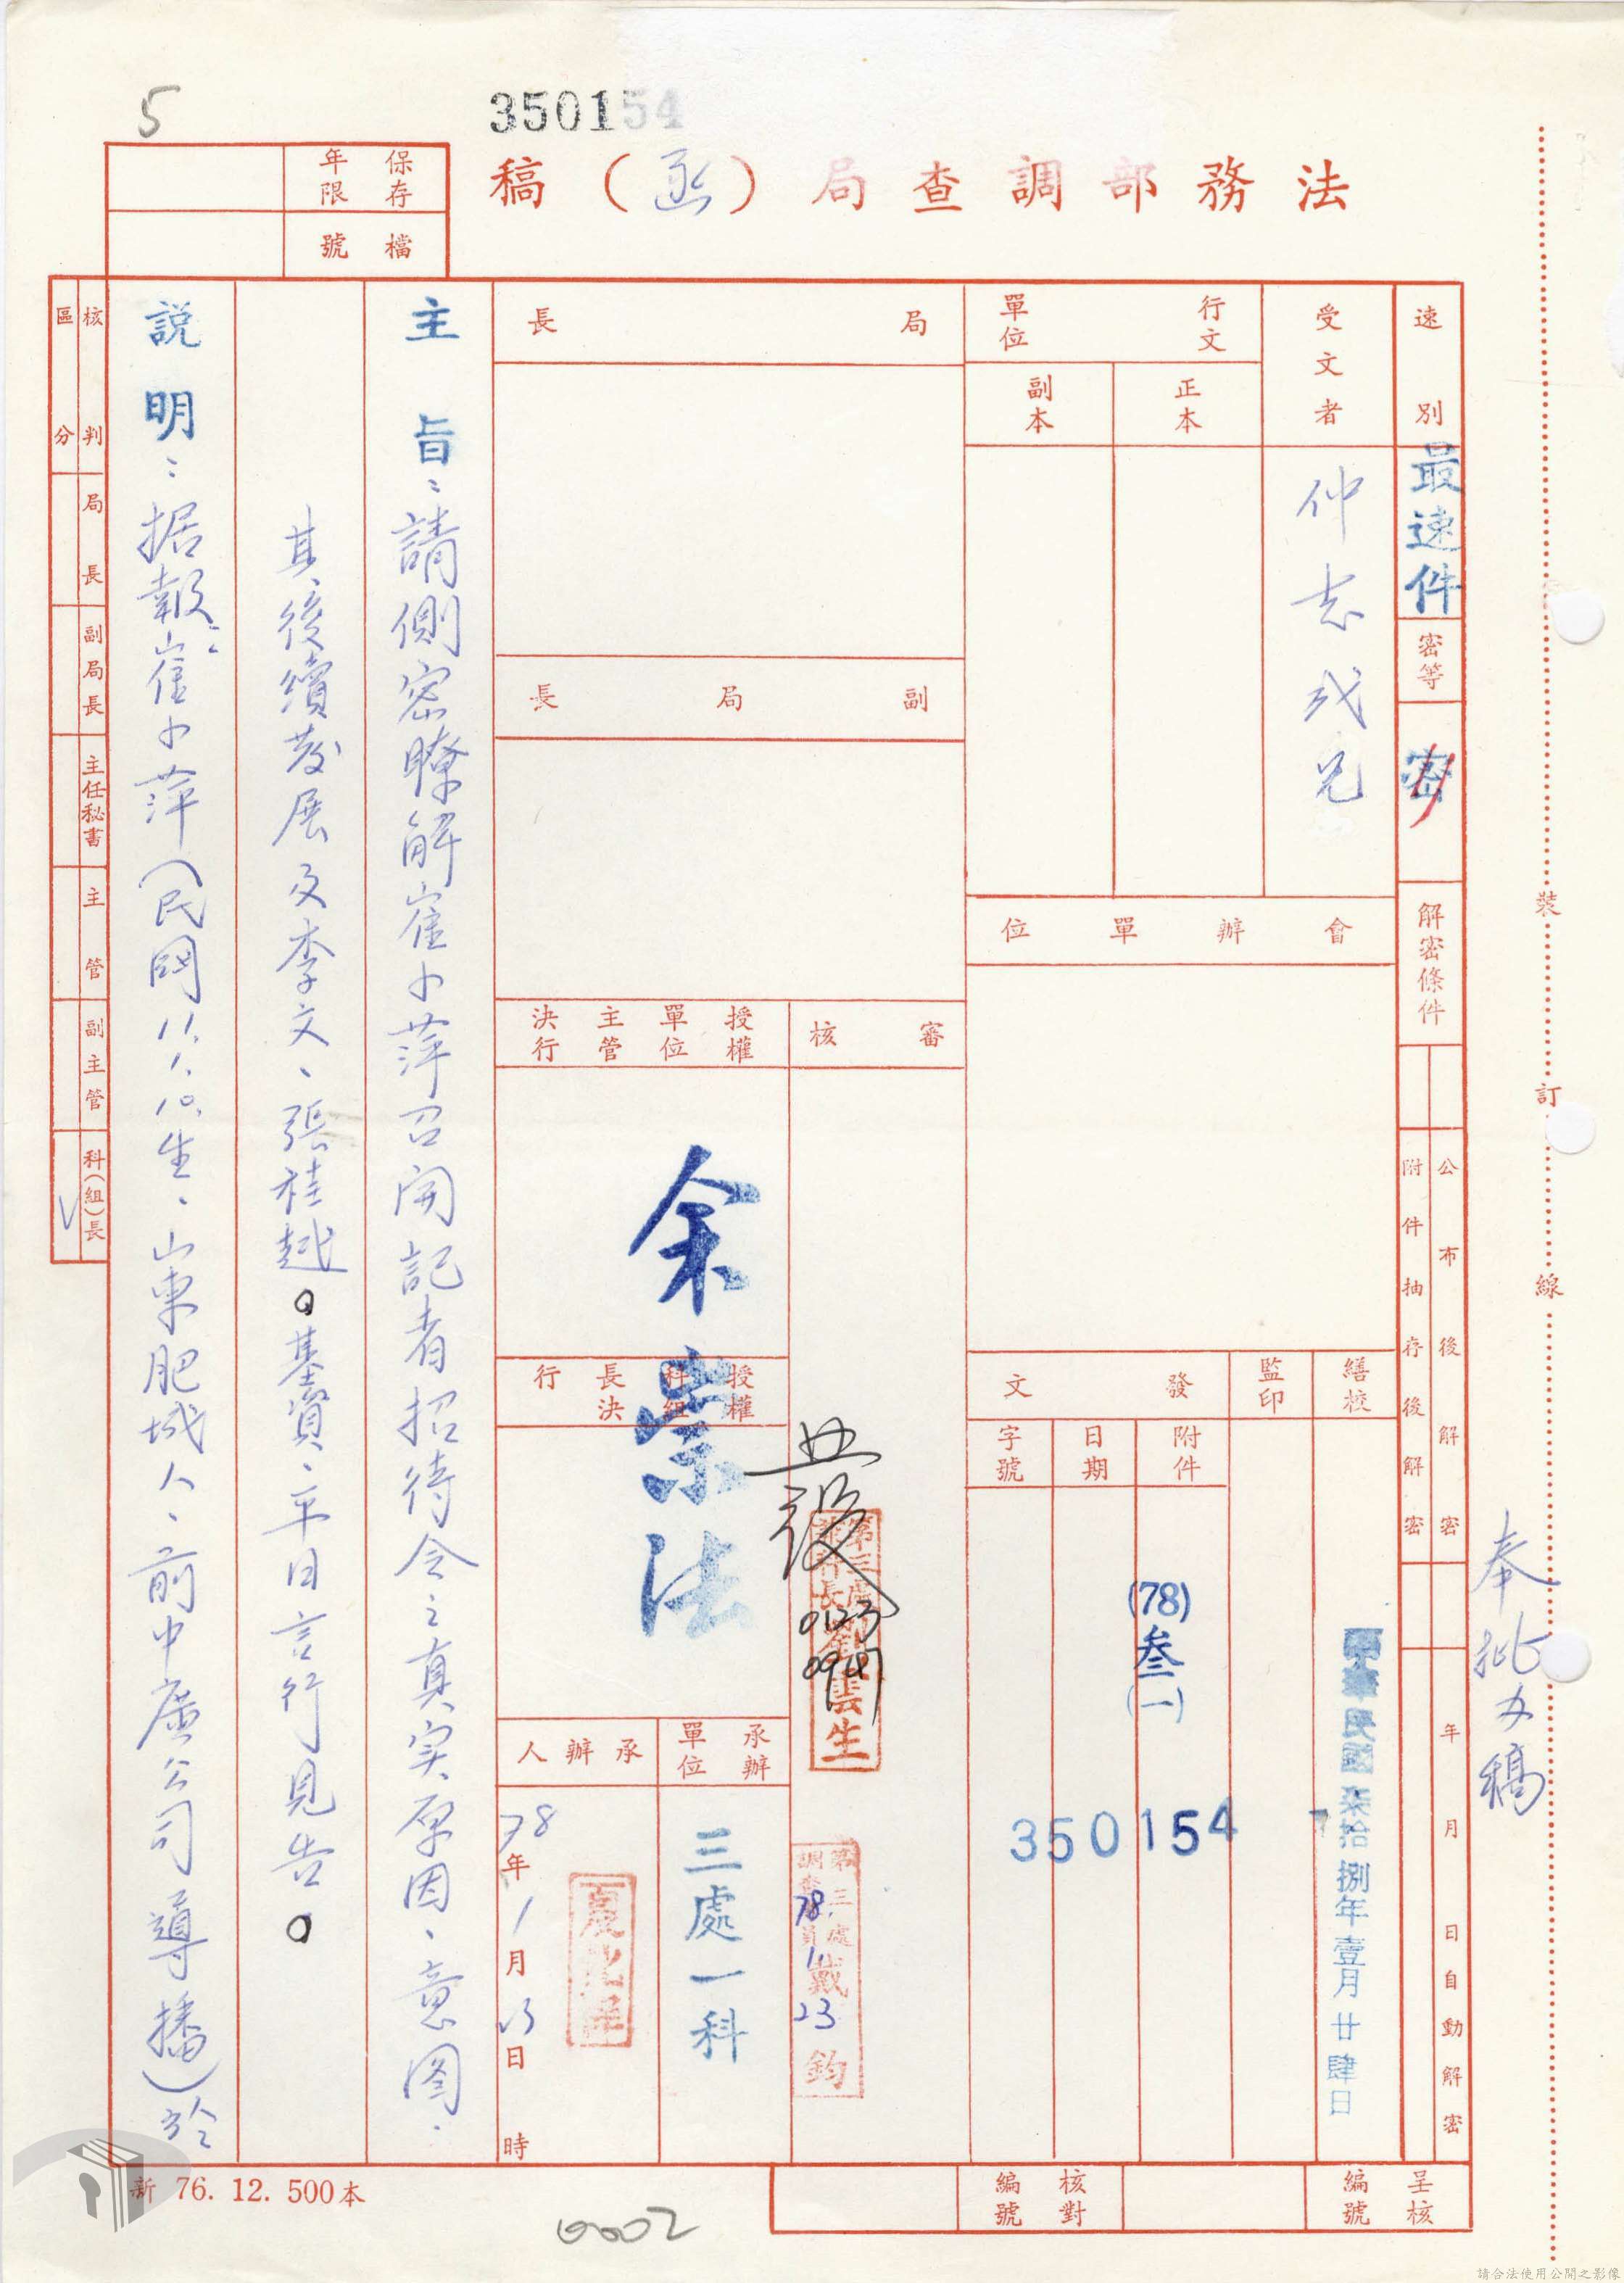 5
350154
法務部調查局（函）稿
保存年限
檔號
速別
最速件
密等
密
解密條件
公布後解密
附件抽存後解密
年月日自動解密
受文者
仲志成兄
行文單位
正本
副本
會辦單位
繕校
監印
發文
附件
日期
字號
中華民國柒拾捌年壹月廿肆日
(78)叁(一)
350154
局長
副局長
審核
授權單位主管決行
余崇法
授權科組長決行
0123
0941
第三處
第三處調查員戴鈞
78.1.23
承辦單位
三處一科
承辦人
78年1月23日時
主旨：請側密瞭解崔小萍召開記者招待会之真实原因、意图、
其後續發展及李文、張桂越。基資、平日言行見告。
說明：据報：崔小萍（民國11.1.10.生、山東肥城人、前中廣公司導播）於
核判區分
局長
副局長
主任秘書
主管
副主管
科(組)長
V
裝訂線
奉批办稿
呈核編號
核對編號
新 76. 12. 500本
0002
請合法使用公開之影像